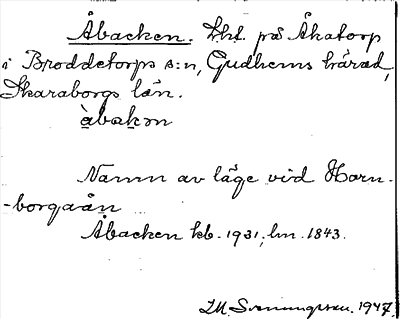 Åbacken. Lht. på Åkatorp
i Broddetorps s:n, Gudhems härad,
Skaraborgs län.
àbakɔn
Namn av läge vid Horn-
-borgaån
Åbacken kb. 1931, lm. 1843.
I.M. Svenungsson. 1947.